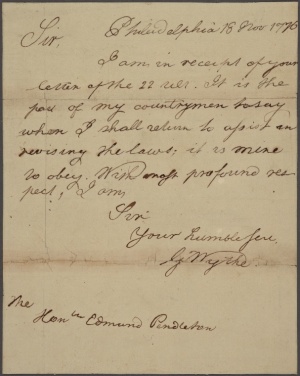 Philadelphia 18 Nov 1776
Sir,
I am in receipt of your
letter of the 22 ult. It is the
part of my countrymen to say
when I shall return to assist in
revising the laws; it is mine
to obey. With most profound res
pect, I am,
Sir
Your humble ser.
G Wythe
The
Honble Edmund Pendleton